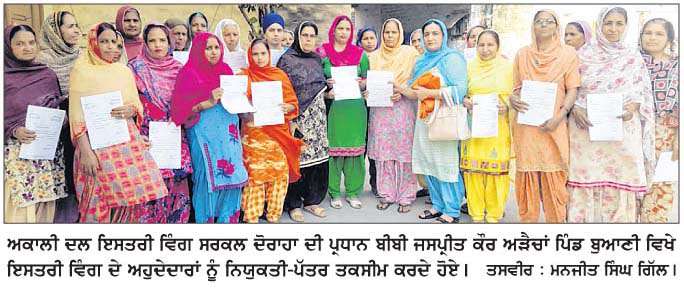 ਅਕਾਲੀ ਦਲ ਇਸਤਰੀ ਵਿੰਗ ਸਰਕਲ ਦੋਰਾਹਾ ਦੀ ਪ੍ਰਧਾਨ ਬੀਬੀ ਜਸਪ੍ਰੀਤ ਕੌਰ ਅੜੈਚਾਂ ਪਿੰਡ ਬੁਆਣੀ ਵਿਖੇ
ਇਸਤਰੀ ਵਿੰਗ ਦੇ ਅਹੁਦੇਦਾਰਾਂ ਨੂੰ ਨਿਯੁਕਤੀ-ਪੱਤਰ ਤਕਸੀਮ ਕਰਦੇ ਹੋਏ। ਤਸਵੀਰ : ਮਨਜੀਤ ਸਿੰਘ ਗਿੱਲ।